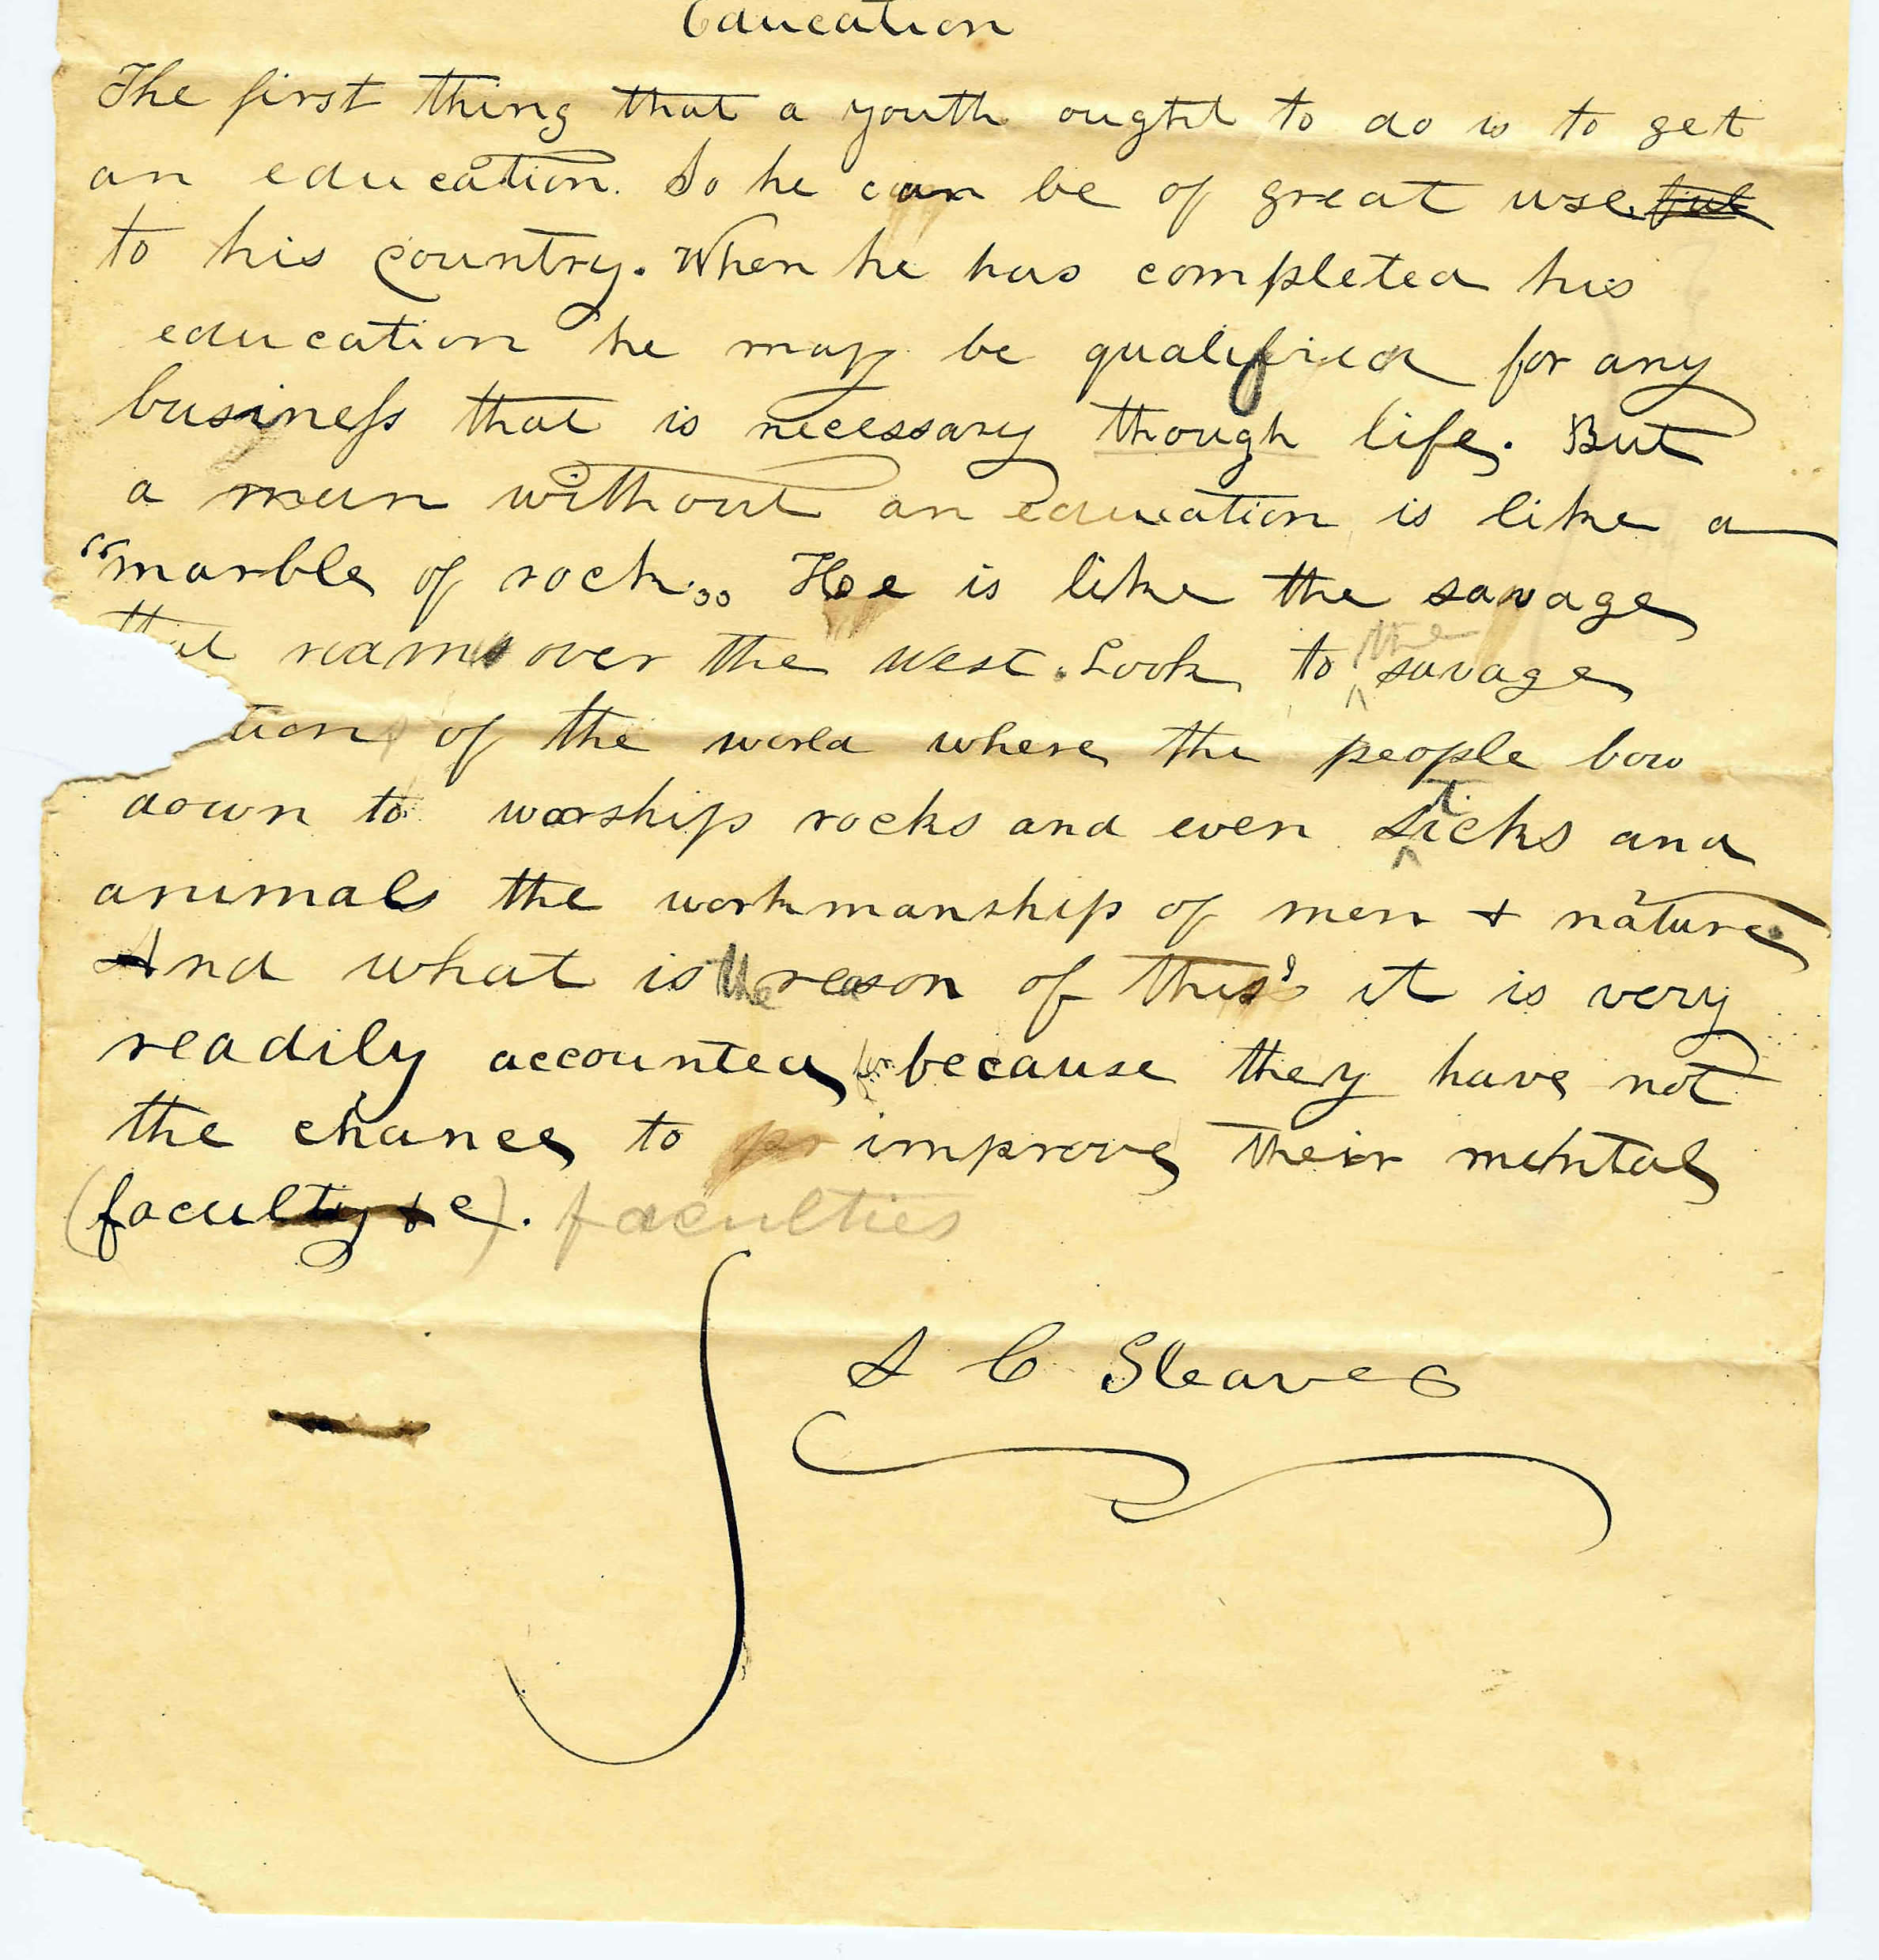 Education
The first thing that a youth ought to do is to get
an education. So he can be of great use ful
to his country. When he has completed his
education he may be qualified for any
business that is necessary though life. But
a man without an education is like a
"marble of rock". He is like the savage
roams over the west. Look to the savage
tion of the world where the people bow
down to worship rocks and even sticks and
animals the workmanship of men & nature.
And what is the reason of this? it is very
readily accounted for because they have not
the chance to improve their mental
(faculty &c). faculties
S C Sleaves